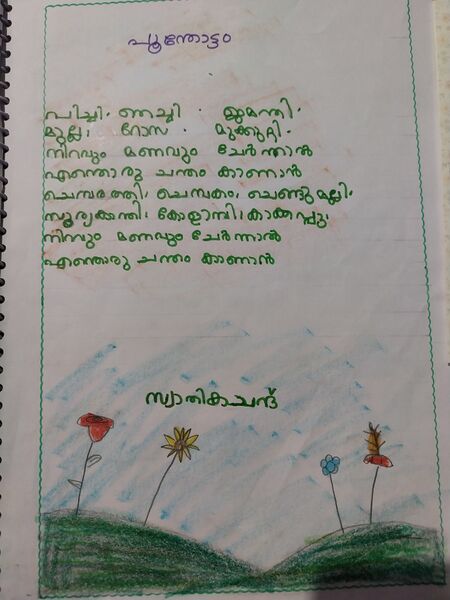 പൂന്തോട്ടം
പിച്ചി, ണച്ചി, ജമന്തി,
മുല്ല, റോസ, മുക്കുറ്റി,
നിറവും മണവും ചേർന്നാൽ
എന്തൊരു ചന്തം കാണാൻ
ചെമ്പരത്തി, ചെമ്പകം, ചെണ്ടുമുല്ലി,
സൂര്യക്കാന്തി, കോളാമ്പി, കാക്കപ്പൂ,
നിറവും മണവും ചേർന്നാൽ
എന്തൊരു ചന്തം കാണാൻ
സ്വാതികാചന്ദ്